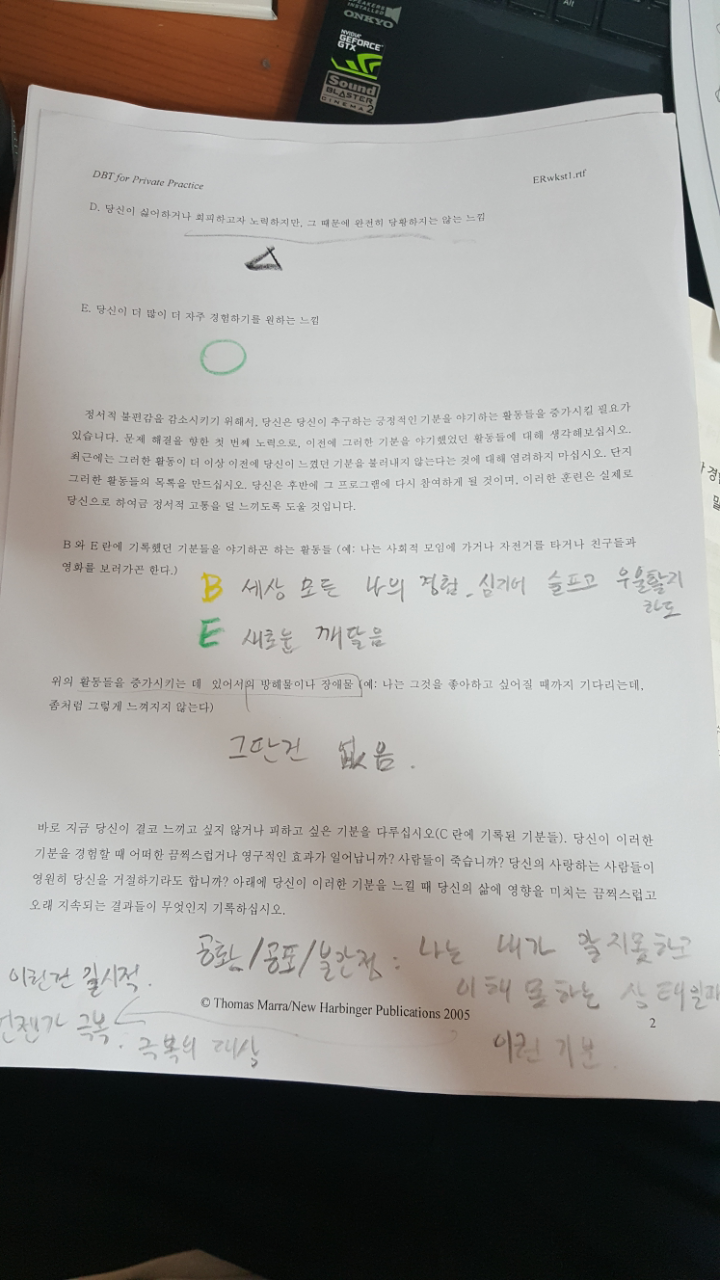 SPEAKERS
INSTALLED
ONKYO
NVIDIA
GEFORCE
GTX
Sound
BLASTER
CINEMA 2
Alt
DBT for Private Practice
ERwkst1.rtf
D. 당신이 싫어하거나 회피하고자 노력하지만, 그 때문에 완전히 당황하지는 않는 느낌
E. 당신이 더 많이 더 자주 경험하기를 원하는 느낌
정서적 불편감을 감소시키기 위해서, 당신은 당신이 추구하는 긍정적인 기분을 야기하는 활동들을 증가시킬 필요가
있습니다. 문제 해결을 향한 첫 번째 노력으로, 이전에 그러한 기분을 야기했었던 활동들에 대해 생각해보십시오.
최근에는 그러한 활동이 더 이상 이전에 당신이 느꼈던 기분을 불러내지 않는다는 것에 대해 염려하지 마십시오. 단지
그러한 활동들의 목록을 만드십시오. 당신은 후반에 그 프로그램에 다시 참여하게 될 것이며, 이러한 훈련은 실제로
당신으로 하여금 정서적 고통을 덜 느끼도록 도울 것입니다.
B 와 E 란에 기록했던 기분들을 야기하곤 하는 활동들 (예: 나는 사회적 모임에 가거나 자전거를 타거나 친구들과
영화를 보러가곤 한다.)
B 세상 모든 나의 경험. 심지어 슬프고 우울할지
라도
E 새로운 깨달음
위의 활동들을 증가시키는 데 있어서의 방해물이나 장애물 (예: 나는 그것을 좋아하고 싶어질 때까지 기다리는데,
좀처럼 그렇게 느껴지지 않는다)
그딴건 없음.
바로 지금 당신이 결코 느끼고 싶지 않거나 피하고 싶은 기분을 다루십시오(C 란에 기록된 기분들). 당신이 이러한
기분을 경험할 때 어떠한 끔찍스럽거나 영구적인 효과가 일어납니까? 사람들이 죽습니까? 당신의 사랑하는 사람들이
영원히 당신을 거절하기라도 합니까? 아래에 당신이 이러한 기분을 느낄 때 당신의 삶에 영향을 미치는 끔찍스럽고
오래 지속되는 결과들이 무엇인지 기록하십시오.
공황/공포/불안정 : 나는 내가 알지못하고
이해 못하는 상태일때
이런 기분.
이런건 일시적.
언젠가 극복. 극복의 대상
© Thomas Marra/New Harbinger Publications 2005
2